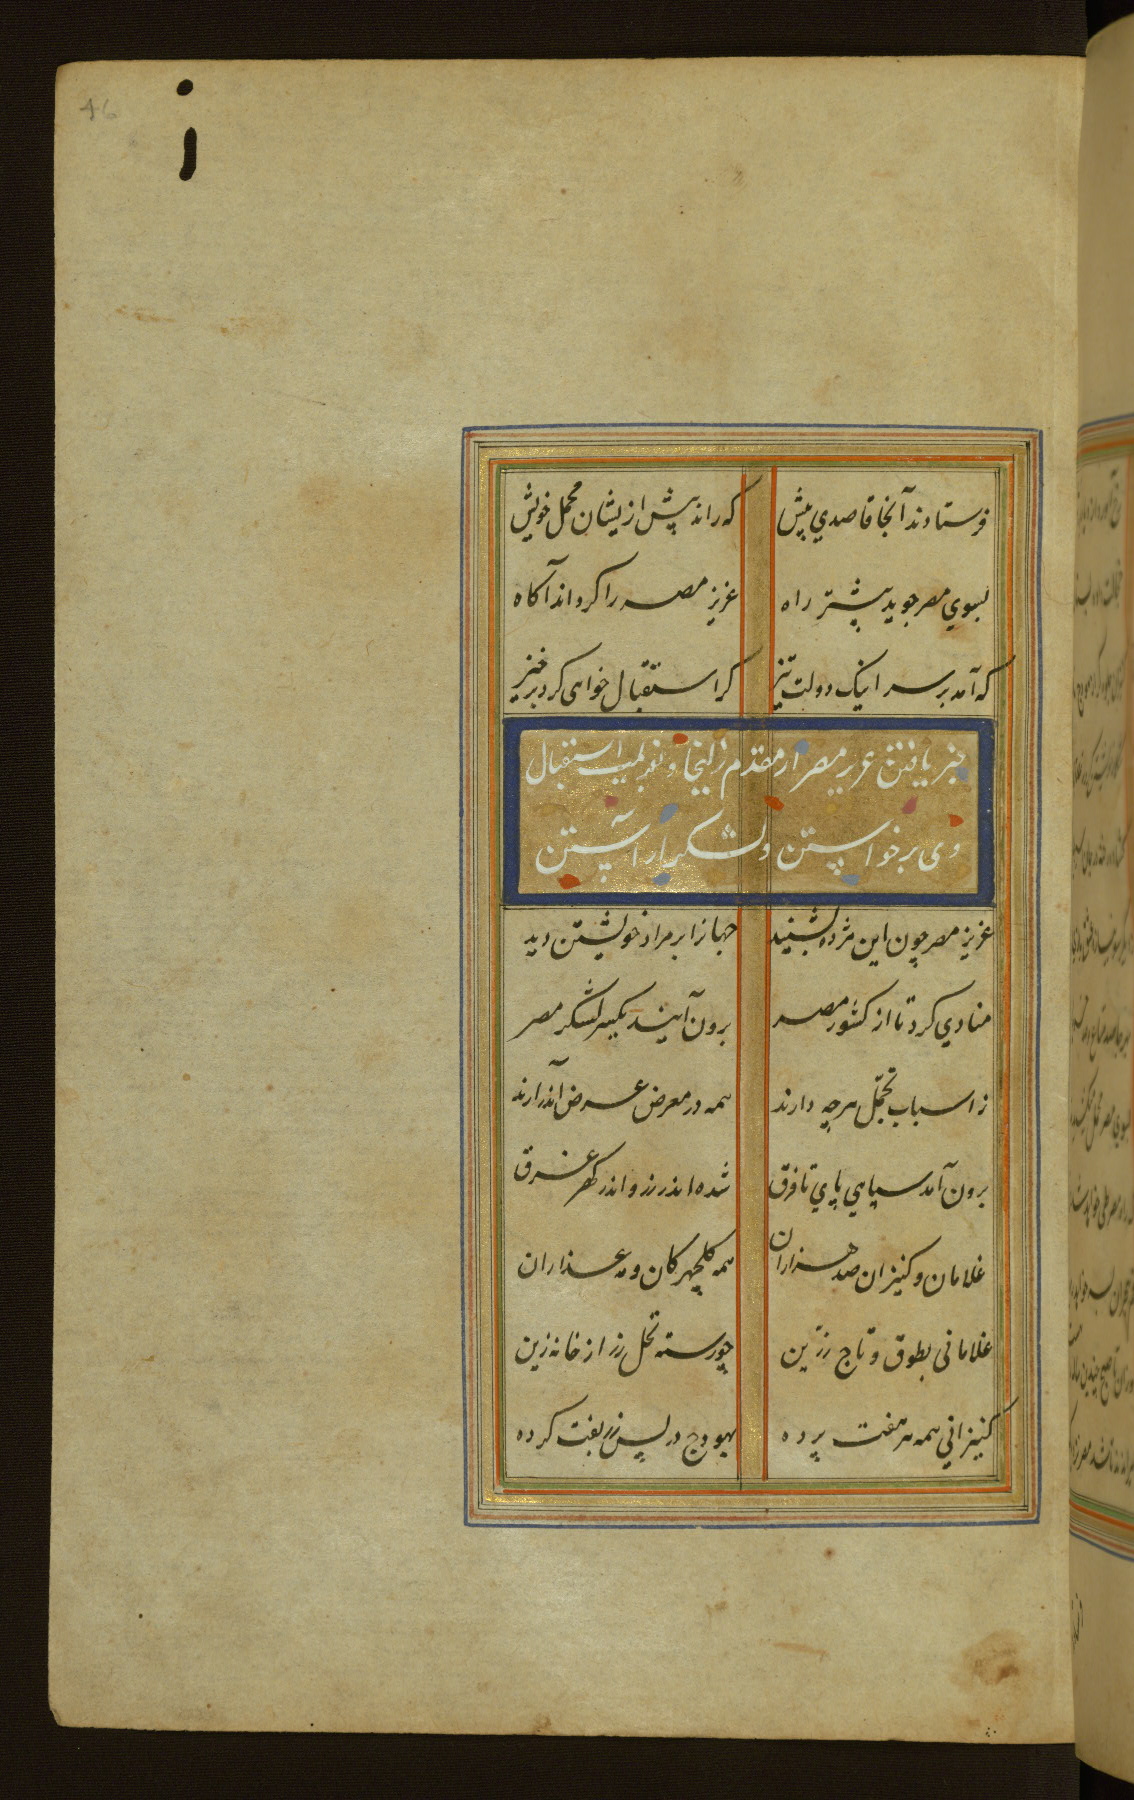 46
فرستادند آنجا قاصدي پیش که راند پیش ازیشان محمل خویش
بسوي مصر جوید پیشتر راه عزیز مصر را کرداند آکاه
که آمد بر سر اینک دولت تیز کر استقبال خواهی کرد برخیز
خبر یافتن عزیز مصر از مقدم زلیخا و بعزیمت استقبال
وی برخواستن و لشکر را آراستن
عزیز مصر چون این مژده بشنید جهانرا بر مراد خویشتن دید
منادي کرد تا از کشور مصر برون آیند یکسر لشکر مصر
ز اسباب تجمّل هرچه دارند همه در معرض عرض اندر آرند
برون آمد سپاهي پاي تا فرق شده اندر زر و اندر کهر غرق
غلامان و کنیزان صد هزاران همه کلچهرکان و مه عذاران
غلامانی بطوق و تاج زرّین چو رسته نخل زر از خانه زین
کنیزاني همه هر هفت پرده بهودج در پس زربفت کرده